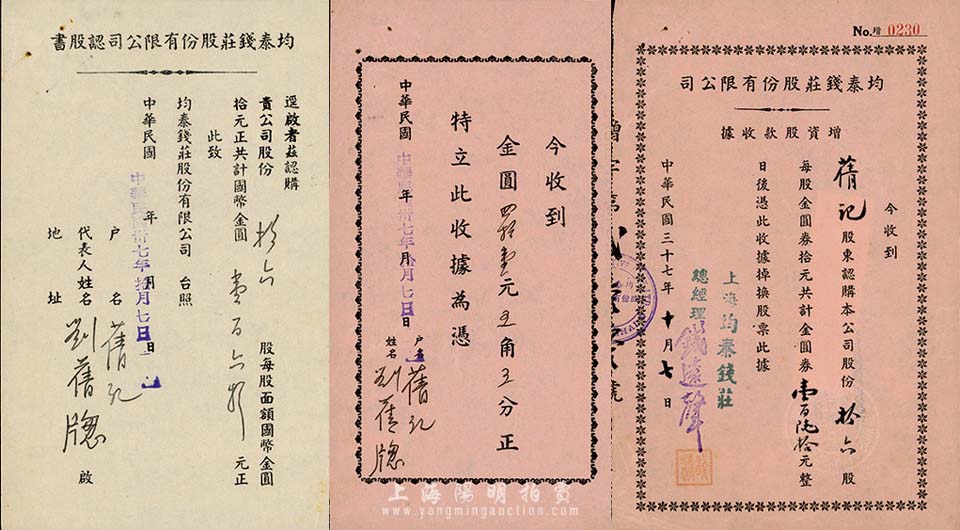 均泰錢莊股份有限公司認股書
逕啟者茲認購
貴公司股份 拾六 股每股面額國幣金圓
拾元正共計國幣金圓 壹百六拾 元正
此致
均泰錢莊股份有限公司 台照
中華民國 年 月 日
中華民國卅七年拾月七日
户名 蒨記
代表人姓名 劉蒨
地址
啟
今收到
金圓 元五角五分正
特立此收據為憑
中華民國 年 月 日
中華民國卅七年拾月七日
户名 蒨記
姓名 劉蒨
No. 增 0230
均泰錢莊股份有限公司
增資股款收據
今收到
蒨記 股東認購本公司股份 拾六 股
每股金圓券拾元共計金圓券壹百陸拾元整
日後憑此收據掉換股票此據
上海均泰錢莊
總經理 錢遠聲
中華民國三十七年 十 月 七 日
上海陽明拍賣
www.yangmingauction.com